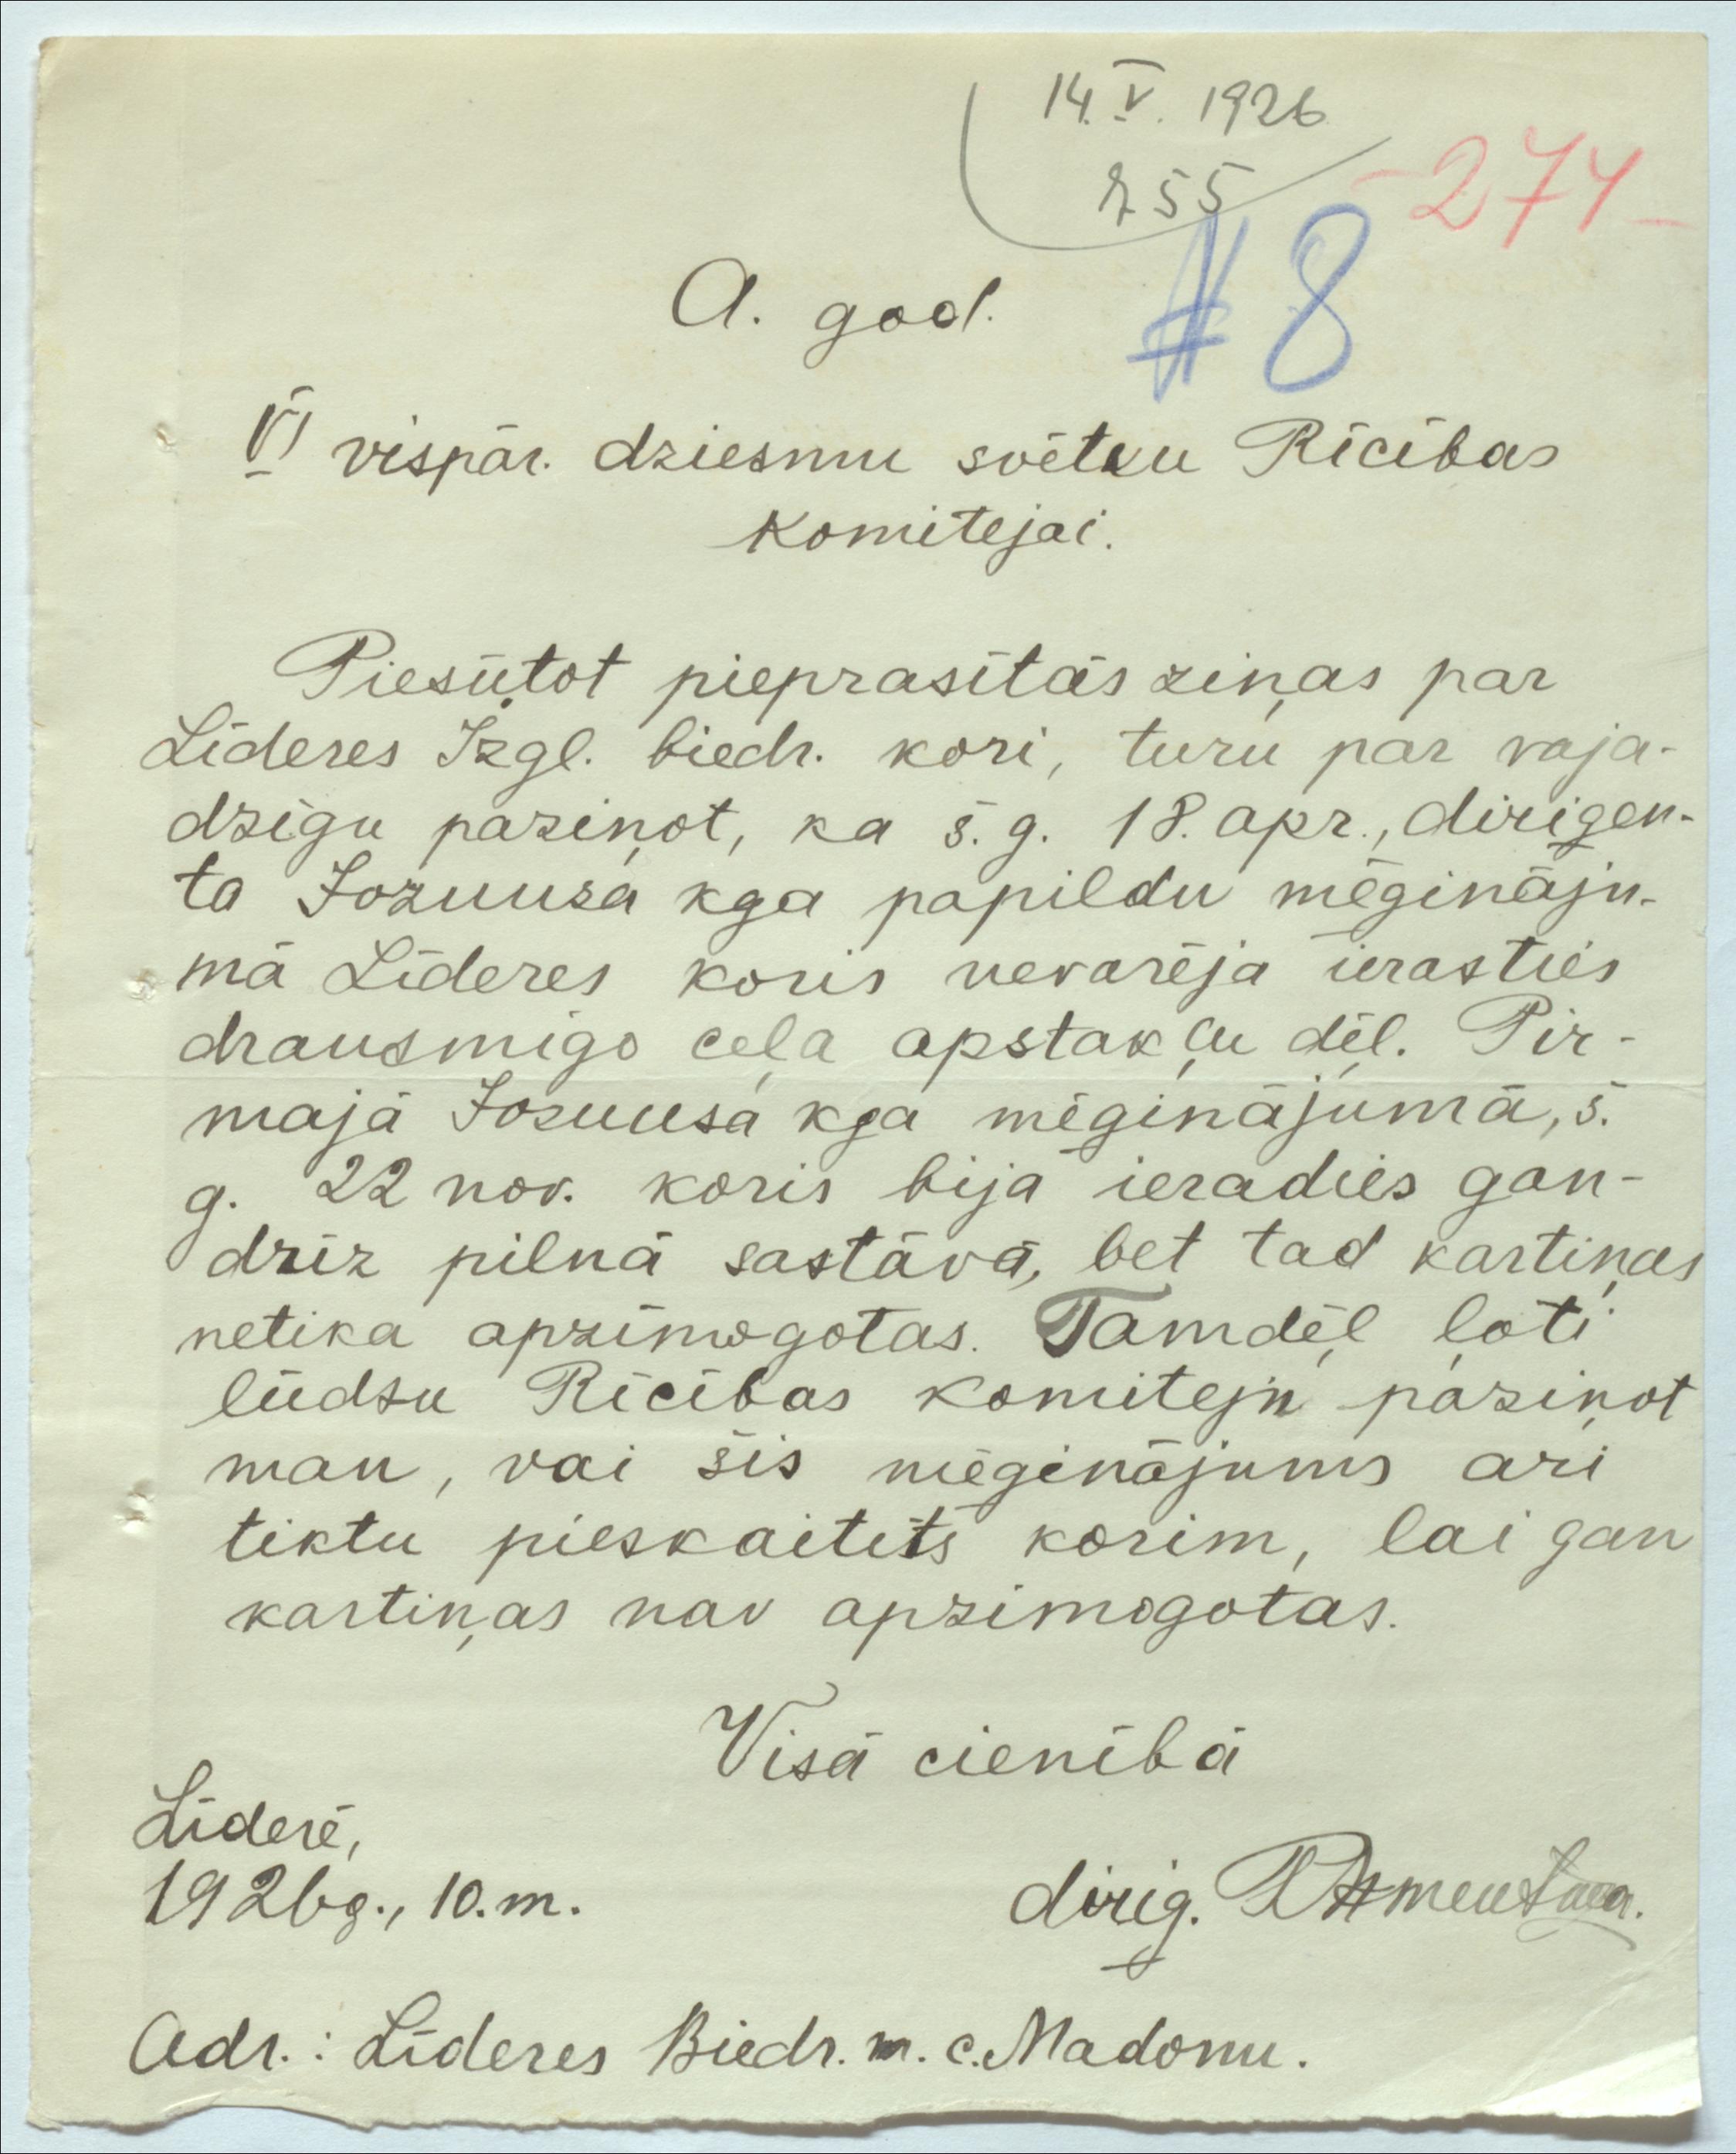 14. V. 1926
255
-274-
# 8
A. god.
VI vispār. dziesmu svētku Rīcības
Komitejai.
Piesūtot pieprasītās ziņas par
Līderes Izgl. biedr. kori, turu par vaja-
dzīgu paziņot, ka š. g. 18. apr., dirigen-
ta Jozuusa kga papildu mēģināju-
mā Līderes koris nevarēja ierasties
drausmīgo ceļa apstakļu dēļ. Pir-
majā Jozuusa kga mēģinājumā, š.
g. 22 nov. koris bija ieradies gan-
drīz pilnā sastāvā, bet tad kartiņas
netika apzīmogotas. Tamdēļ ļoti
lūdzu Rīcības Komiteju paziņot
man, vai šis mēģinājums arī
tiktu pieskaitīts korim, lai gan
kartiņas nav apzīmogotas.
Visā cienībā
Līderē,
1926 g., 10. m.
dirig.
Adr.: Līderes Biedr. m. c. Madonu.